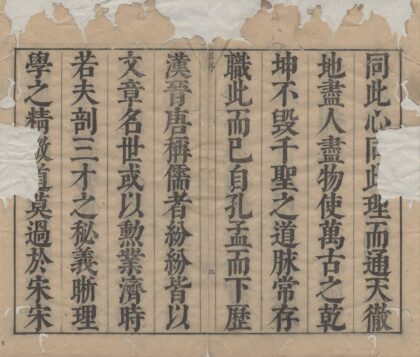 同此心同此理而通天徹
地盡人盡物使萬古之乾
坤不毀千聖之道脉常存
職此而已自孔孟而下歷
漢晉唐稱儒者紛紛皆以
文章名世或以勲業濟時
若夫剖三才之秘義晰理
學之精微道莫過於宋宋